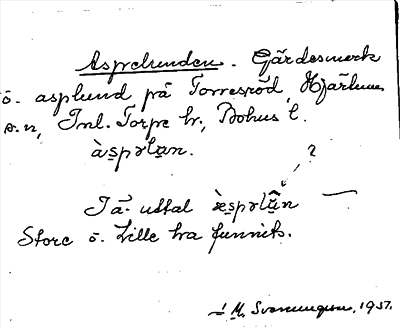 Asprelunden. Gärdesmark
o. asplund på Torresröd, Hjärtums
s:n, Inl. Torpe hr., Bohus l.
àsprlan.
?
Jä. uttal æsprlãn
Store o. Lille ha funnits.
M. Svenungson, 1937.